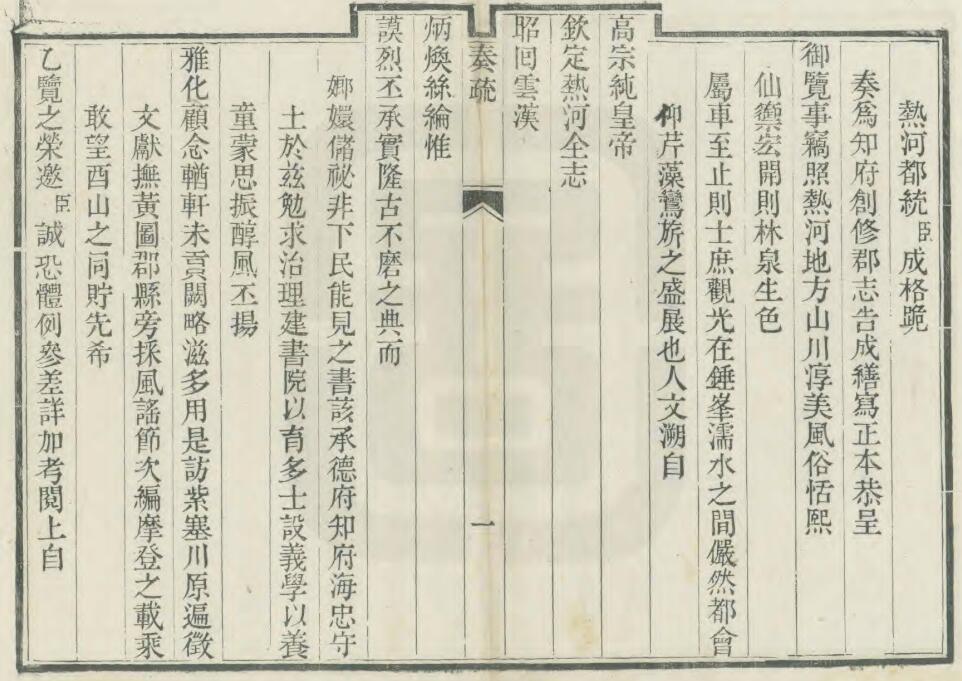 熱河都統臣成格跪
奏爲知府創修郡志告成繕寫正本恭呈
御覽事竊照熱河地方山川淳美風俗恬熙
仙籞宏開則林泉生色
屬車至止則士庶觀光在錘峯濡水之間儼然都會
仰芹藻鸞旂之盛展也人文溯自
高宗純皇帝
欽定熱河全志
昭回雲漢
奏疏
一
炳煥絲綸惟
謨烈丕承實隆古不磨之典而
嫏嬛儲祕非下民能見之書該承德府知府海忠守
土於茲勉求治理建書院以育多士設義學以養
童蒙思振醇風丕揚
雅化顧念輶軒未貢闕略滋多用是訪紫塞川原遍徵
文獻撫黃圖郡縣旁採風謠節次編摩登之載乘
敢望酉山之同貯先希
乙覽之榮邀臣誠恐體例參差詳加考閱上自